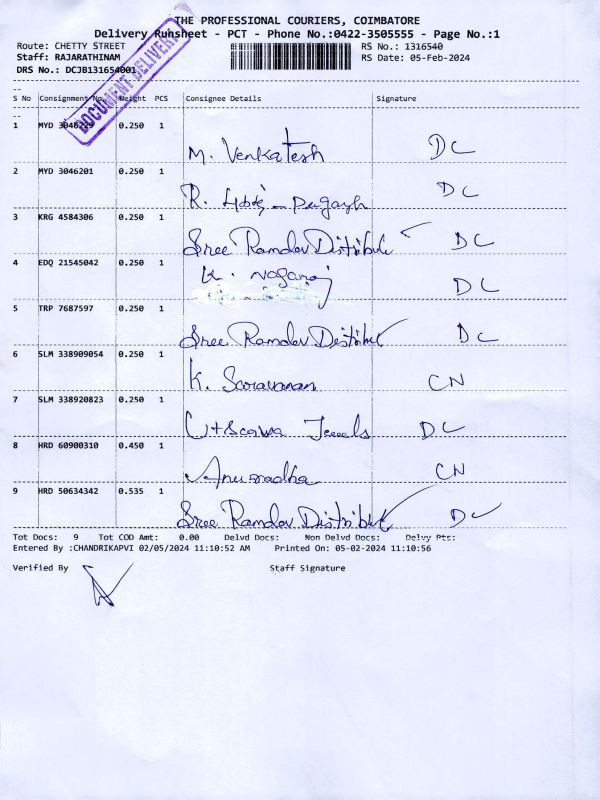 THE PROFESSIONAL COURIERS, COIMBATORE
Delivery Runsheet - PCT - Phone No.:0422-3505555 - Page No.:1
Route: CHETTY STREET RS No.: 1316540
Staff: RAJARATHINAM RS Date: 05-Feb-2024
DRS No.: DCJB131654001
DOCUMENT DELIVERY
S No Consignment No. Weight PCS Consignee Details Signature
1 MYD 3046229 0.250 1
M. Venkatesh DC
2 MYD 3046201 0.250 1
R. DC
3 KRG 4584306 0.250 1
Sree Ramdev Distribut DC
4 EDQ 21545042 0.250 1
K. Nagaraj DC
5 TRP 7687597 0.250 1
Sree Ramdev Distribut DC
6 SLM 338909054 0.250 1
K. CN
7 SLM 338920823 0.250 1
Jewels DC
8 HRD 60900310 0.450 1
Anuradha CN
9 HRD 50634342 0.535 1
Sree Ramdev Distribut DC
Tot Docs: 9 Tot COD Amt: 0.00 Delvd Docs: Non Delvd Docs: Delvy Pts:
Entered By :CHANDRIKAPVI 02/05/2024 11:10:52 AM Printed On: 05-02-2024 11:10:56
Verified By Staff Signature